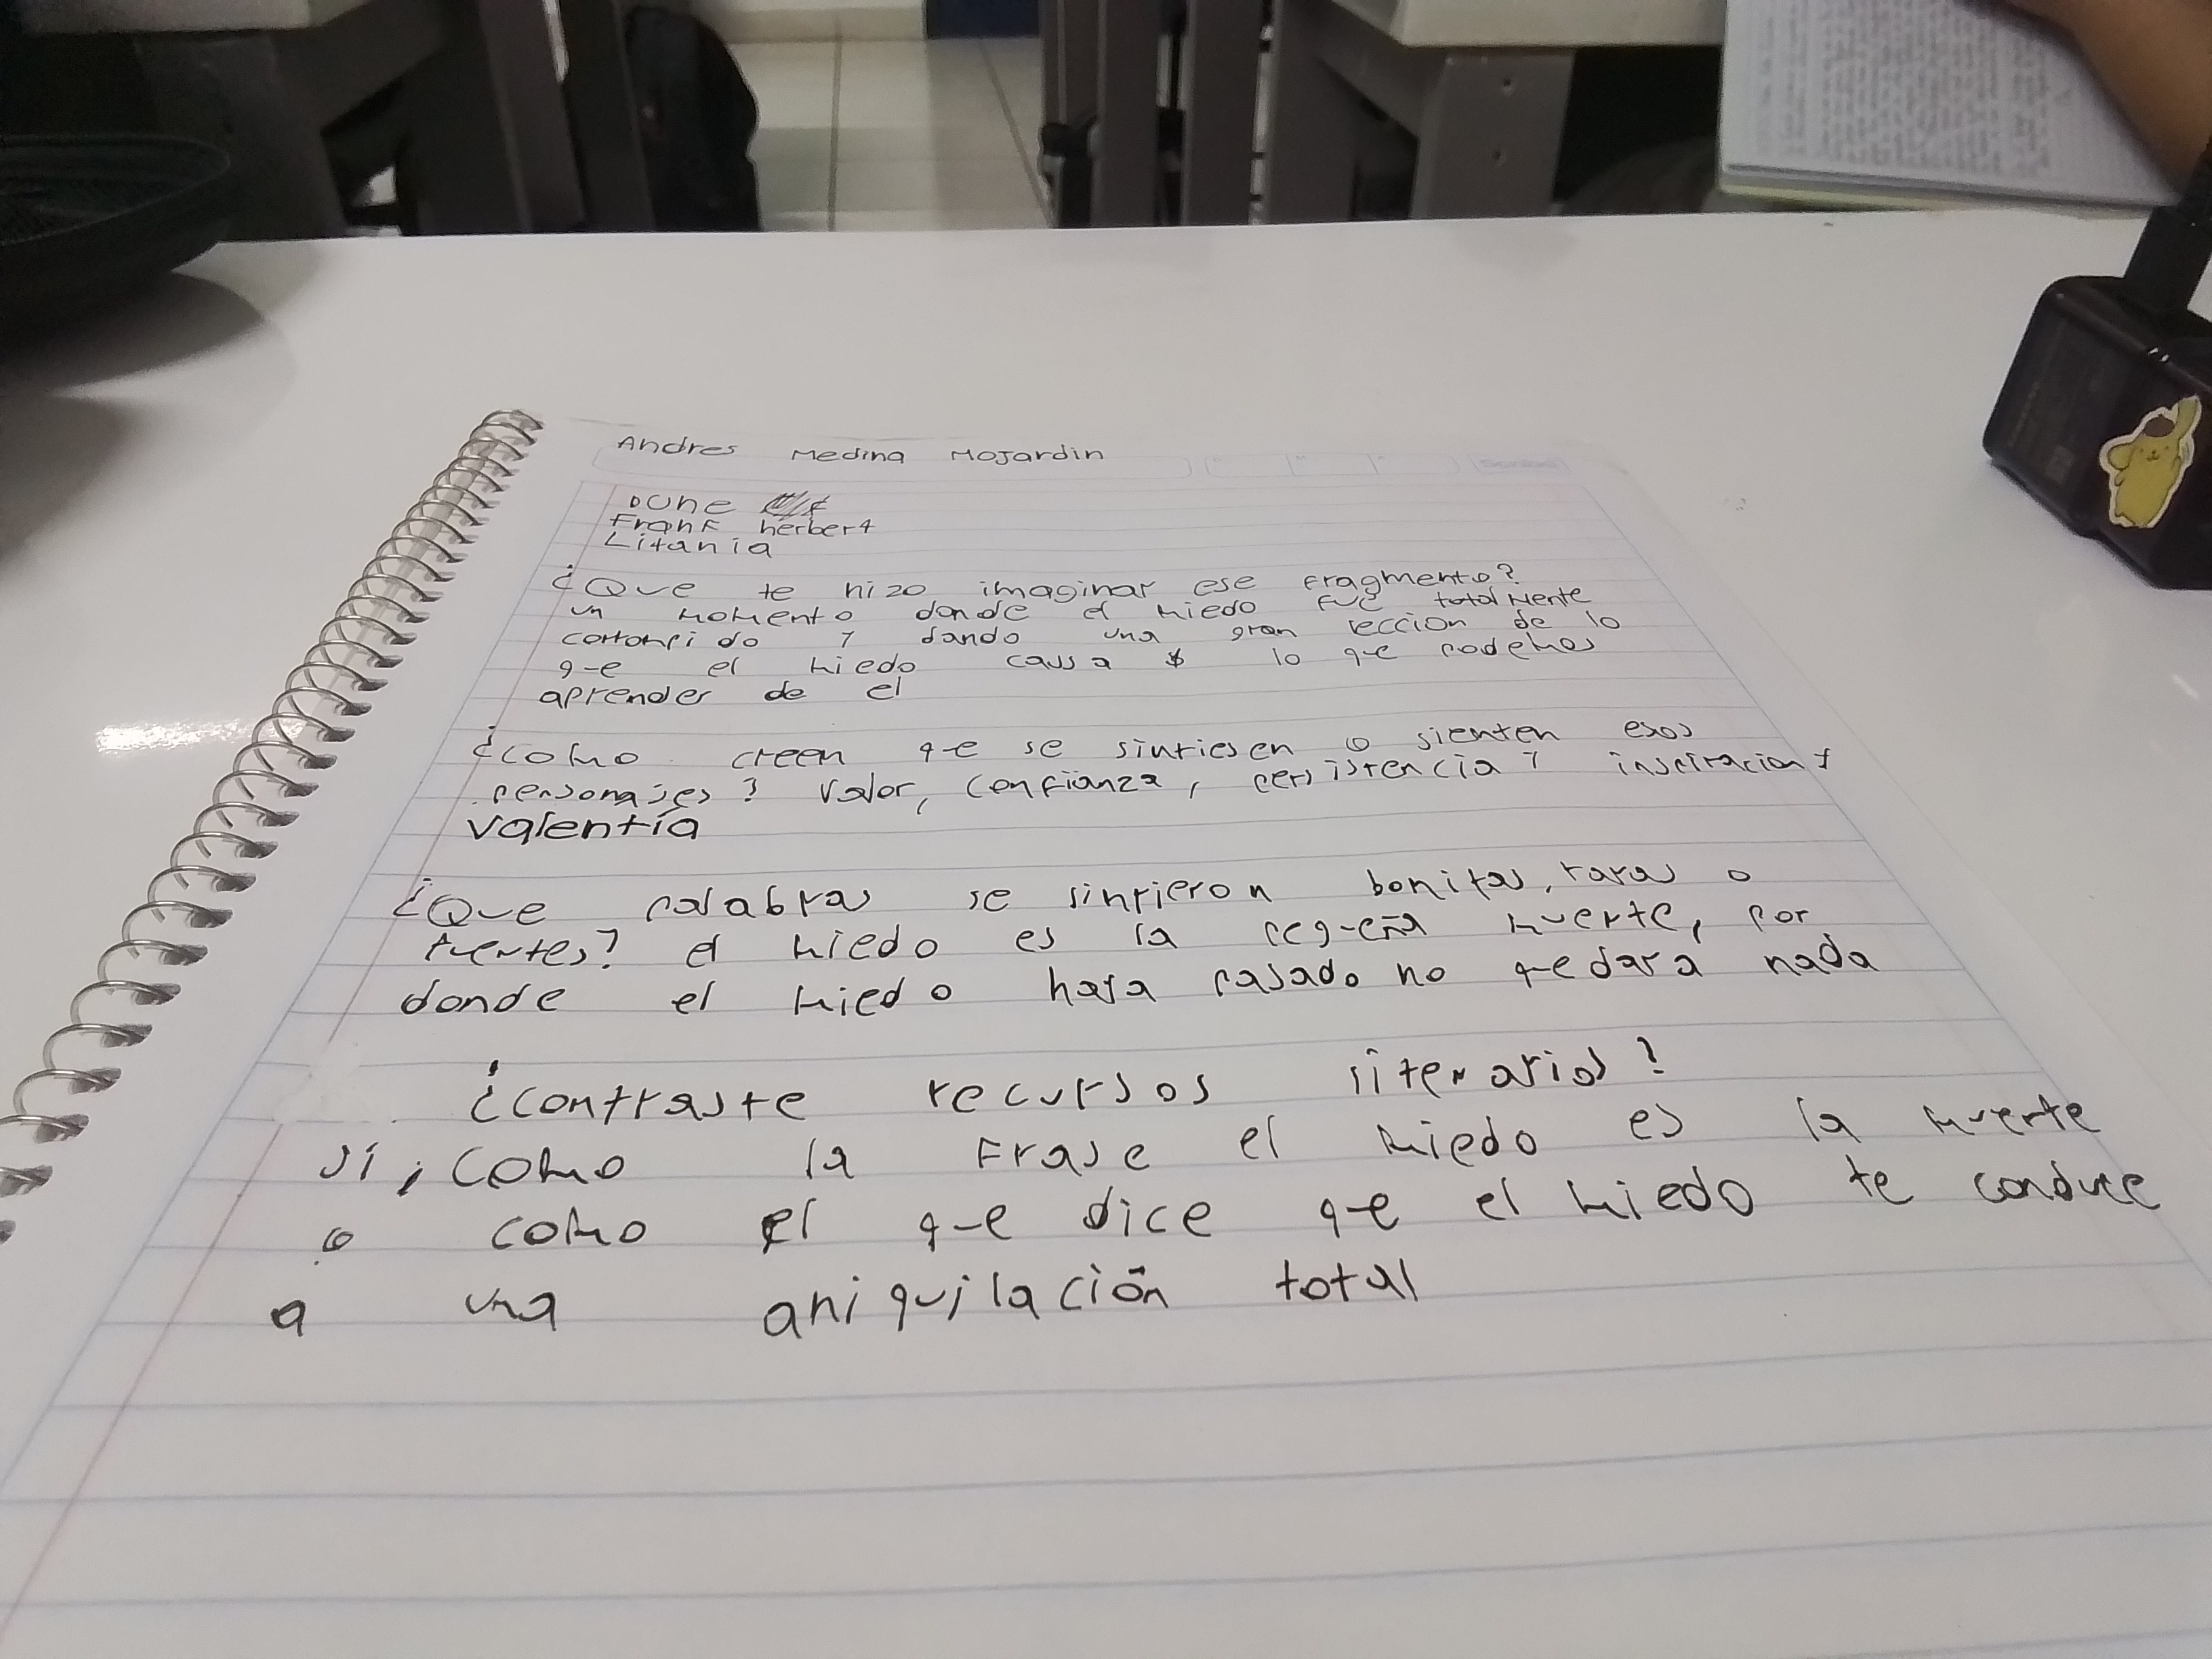 Andres Medina Mojardin
Dune
Frank herbert
Litania
¿Que te hizo imaginar ese fragmento?
un momento donde el miedo fue totalmente
y dando una gran leccion de lo
que el miedo causa lo que podemos
aprender de el
¿como creen que se sintiesen o sienten esos
personajes? Valor, confianza, persistencia y inspiracion y
valentía
¿Que palabras se sintieron bonitas, raras o
fuertes? el miedo es la pequeña muerte, por
donde el miedo haya pasado no quedara nada
¿contraste recursos literarios?
si, como la frase el miedo es la muerte
o como el que dice que el miedo te conduce
a una aniquilación total